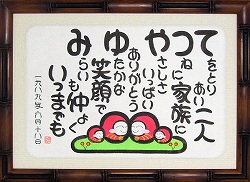 てをとり
あい二人
つねに家族に
やさしさ
いっぱい
ありがとう
ゆたかな
笑顔で
みらいも仲よく
いつまでも
一九八九年八月十八日